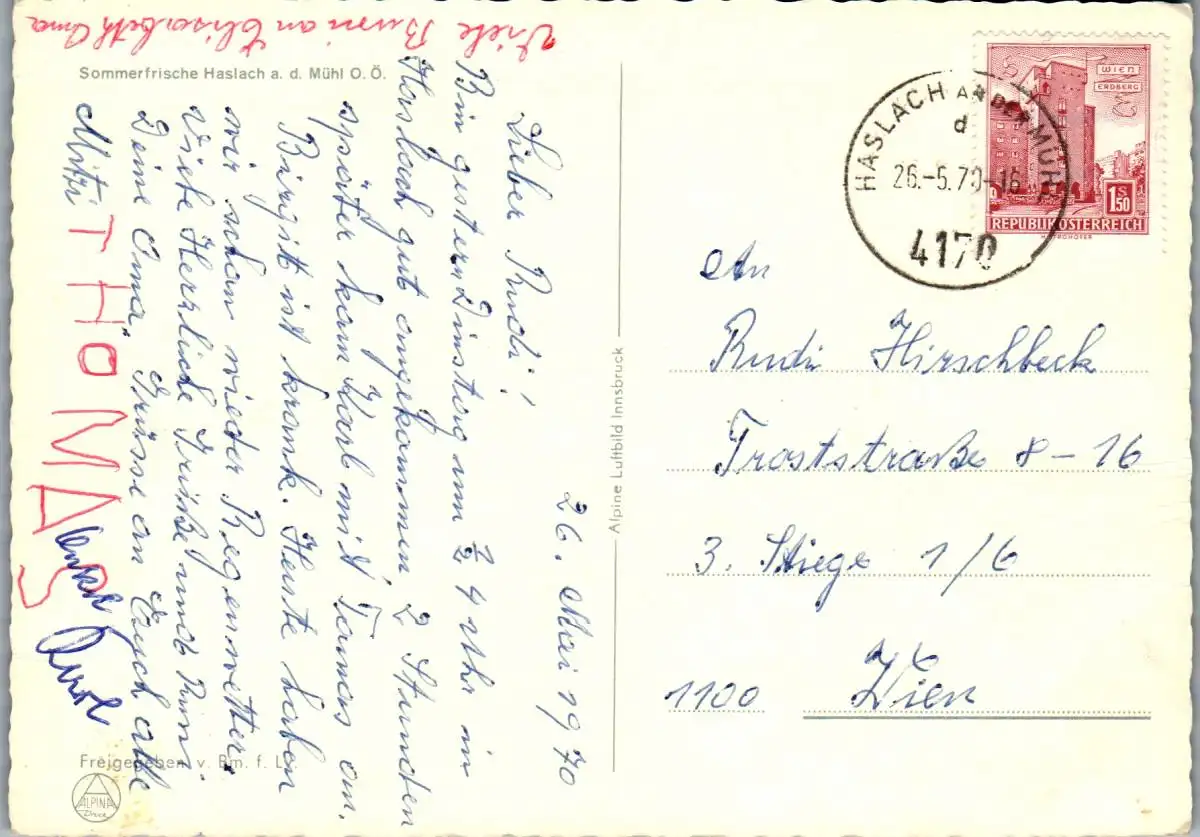 Viele Bussi an Elisabeth Oma
Sommerfrische Haslach a. d. Mühl O. Ö.
26. Mai 1970
Lieber Rudi!
Bin gestern Dinstag um ½ 4 Uhr in
Haslach gut angekommen, 2 Stunden
später kam Karl mit Tamas an.
Birgit ist krank. Heute haben
wir schon wieder Regenwetter.
Viele Herzliche Grüße und Bussi
Deine Oma, Grüsse an Euch alle
Mitzi
THOMAS
Onkel
Karl
Freigegeben v. Bm. f. Lv.
ALPINA
Druck
Alpine Luftbild Innsbruck
HASLACH AN DER MÜHL
d
26.-5.70-16
4170
WIEN
ERDBERG
1 S 50
REPUBLIK ÖSTERREICH
An
Rudi Hirschbeck
Troststraße 8 - 16
3. Stiege 1/6
1100 Wien